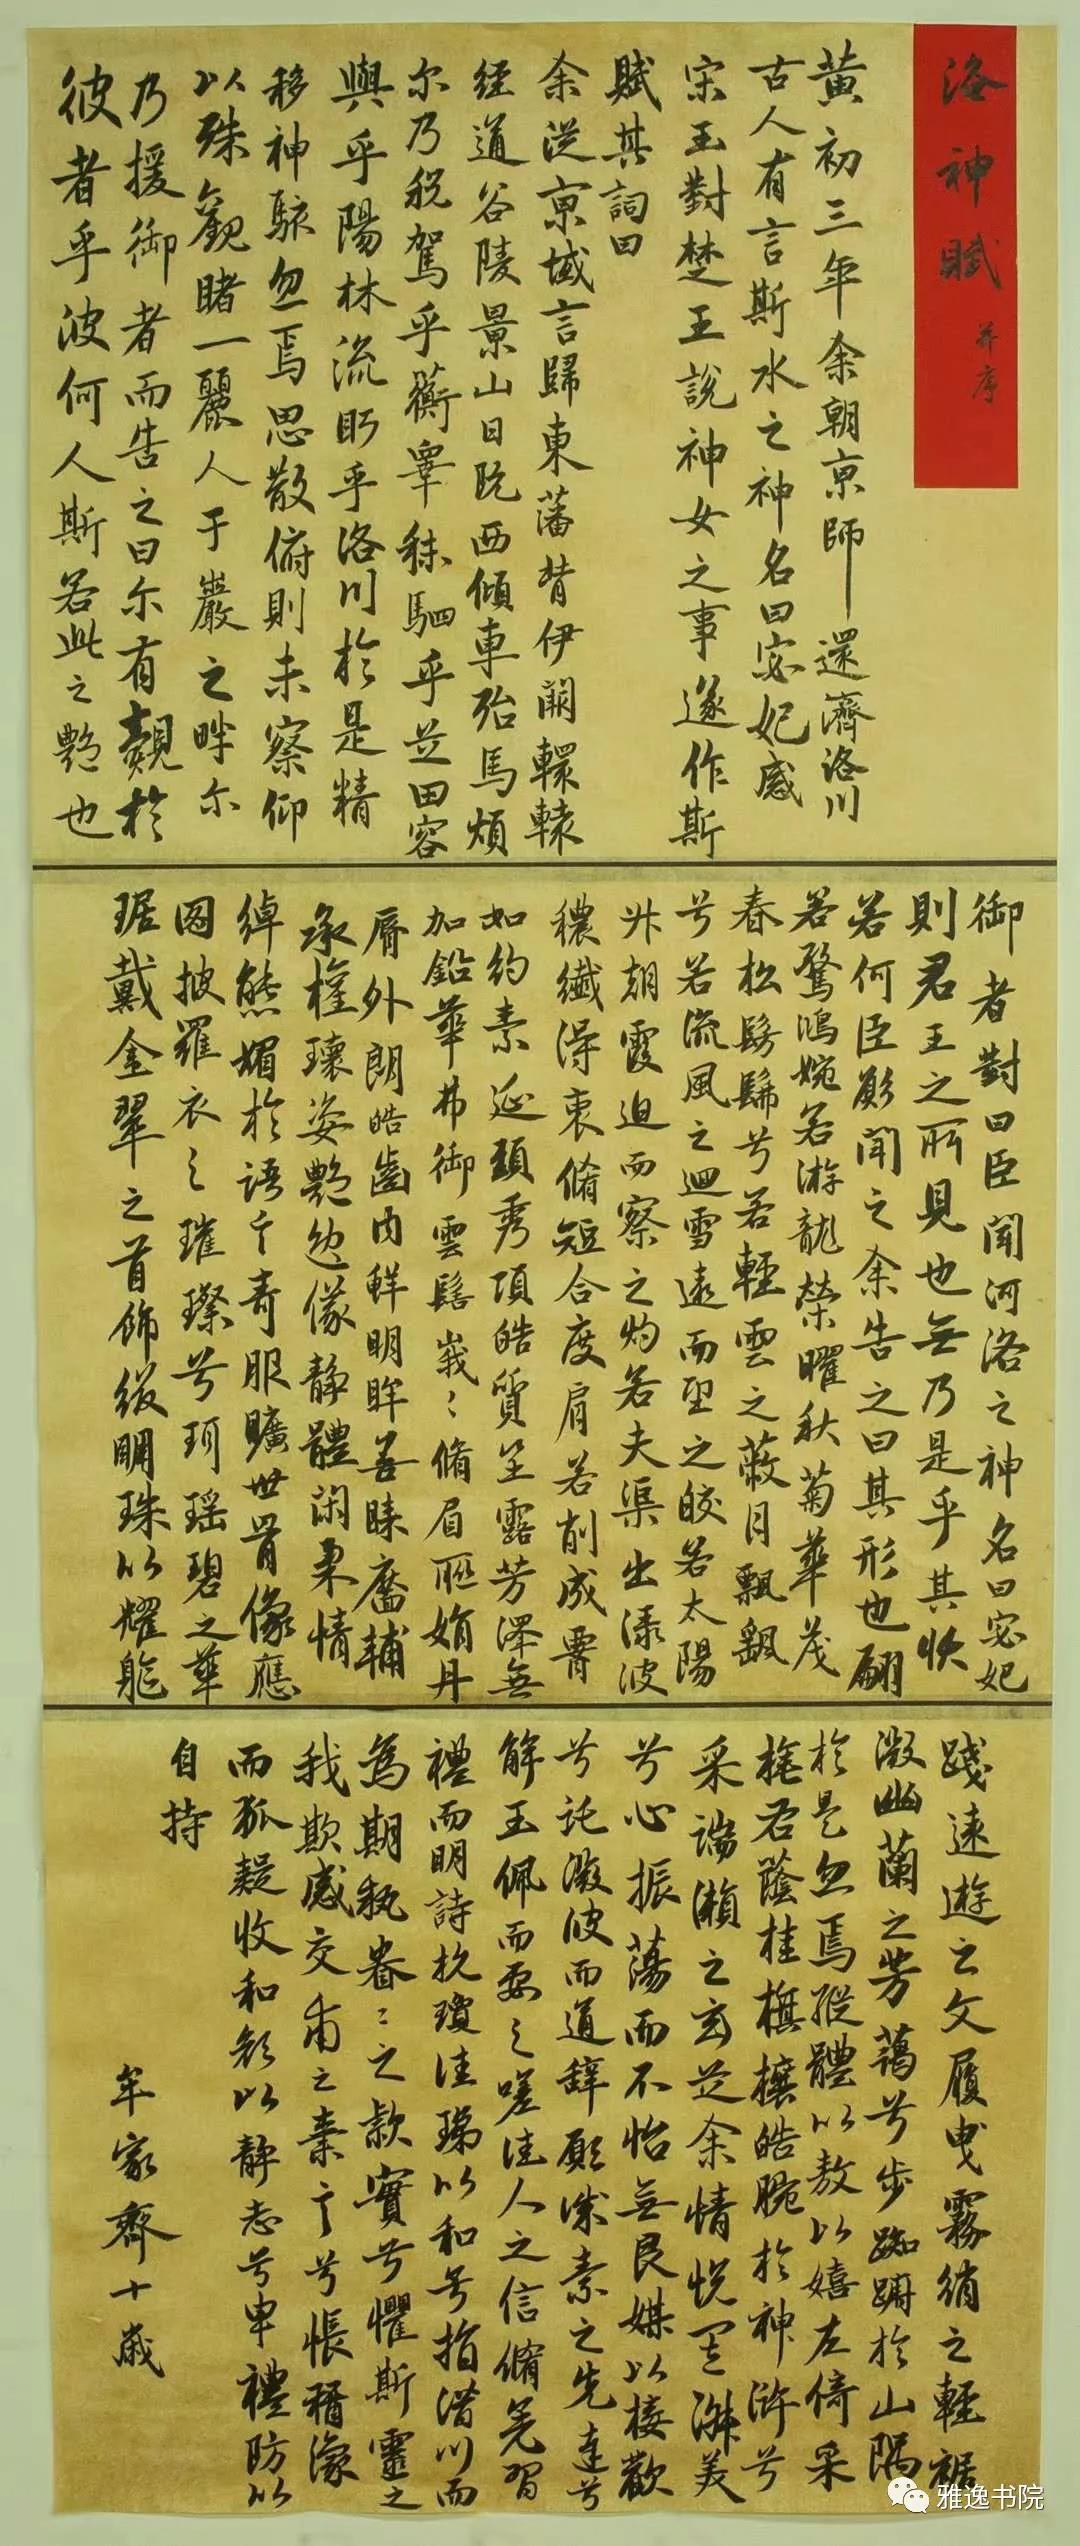 洛神賦
并序
黃初三年余朝京師還濟洛川
古人有言斯水之神名曰宓妃感
宋玉對楚王說神女之事遂作斯
賦其詞曰
余従京域言歸東藩背伊闕轘轅
經道谷陵景山日既西傾車殆馬煩
尔乃稅駕乎蘅睪秣駟乎芝田容
與乎陽林流眄乎洛川於是精
移神駭忽焉思散俯則未察仰
以殊觀睹一麗人于巖之畔尔
乃援御者而告之曰尔有覿於
彼者乎波何人斯若此之艷也
御者對曰臣聞河洛之神名曰宓妃
則君王之所見也無乃是乎其狀
若何臣願聞之余告之曰其形也翩
若驚鴻婉若游龍榮曜秋菊華茂
春松髣髴兮若輕雲之蔽月飄飖
兮若流風之迴雪遠而望之皎若太陽
升朝霞迫而察之灼若夫渠出淥波
穠纖得衷脩短合度肩若削成腰
如約素延頸秀項皓質呈露芳澤無
加鉛華弗御雲髻峩〻脩眉聯娟丹
脣外朗皓齒內鮮明眸善睞靨輔
承權瓌姿艷逸儀静體閑柔情
綽態媚於語言奇服曠世骨像應
圖披羅衣之璀璨兮珥瑤碧之華
琚戴金翠之首飾綴明珠以耀軀
踐遠遊之文履曳霧綃之輕裾
微幽蘭之芳藹兮步踟躕於山隅
於是忽焉縱體以敖以嬉左倚采
旄右蔭桂旗攘皓腕於神滸兮
采湍瀨之玄芝余情悅其淑美
兮心振蕩而不怡無良媒以接歡
兮託微波而道辭願誠素之先達兮
解玉佩而要之嗟佳人之信脩羌習
禮而明詩抗瓊珶以和兮指潛川而
為期執眷〻之款實兮懼斯靈之
我欺感交甫之棄言兮悵猶豫
而狐疑收和顏以静志兮申禮防以
自持
牟家齊十歲
雅逸书院